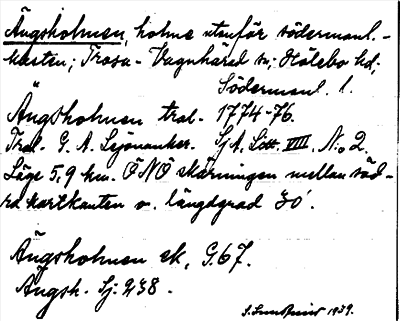 Ängsholmen, holme utanför södermanl.-
kusten; Trosa-Vagnhärad sn; Hölebo hd,
Södermanl. l.
Ängsholmen tral. 1774-76.
Tral. G. A. Leijonancker. Sj A. Litt. VIII, No 2.
Läge 5,9 km. ÖNÖ skärningen mellan söd-
ra kartkanten o. längdgrad 30'.
Ängsholmen ek. G.67.
Ängsh. Sj: 238.
1939.